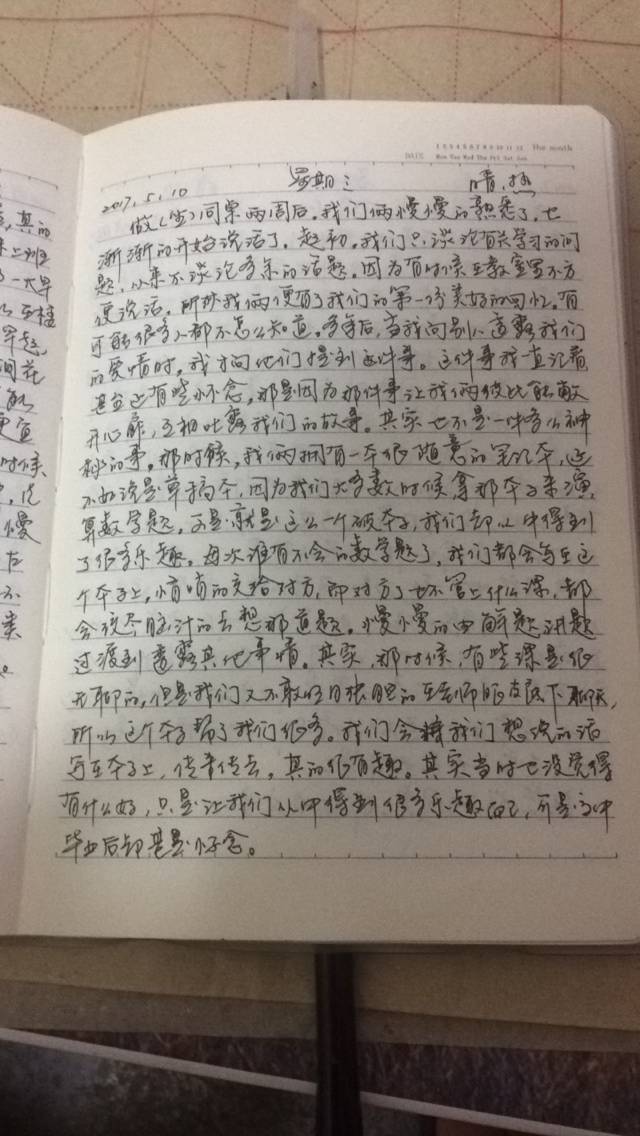 DATE 1 2 3 4 5 6 7 8 9 10 11 12 The month
Mon Tue Wed Thu Fri Sat Sun
2017.5.10 星期三 晴.热
做(签)同桌两周后.我们俩慢慢的熟悉了,也
渐渐的开始说话了.起初.我们只谈论有关学习的问
题,从来不谈论多余的话题。因为有时候在教室里不方
便说话,所以我俩便有了我们的第一份美好的回忆。有
可能很多人都不怎么知道。多年后,当我向别人透露我们
的爱情时,我才向他们提到这件事。这件事我一直记着,
甚至还有些怀念,那是因为那件事让我俩彼此能敞
开心扉,互相吐露我们的故事。其实也不是一件多么神
秘的事。那时候,我俩拥有一本很随意的笔记本,还
不如说是草稿本,因为我们大多数时候拿那本子来演
算数学题。可是就是这么一个破本子,我们却从中得到
了很多乐趣。每次谁有不会的数学题了,我们都会写在这
个本子上,悄悄的交给对方,即对方了也不管上什么课,都
会绞尽脑汁的去想那道题。慢慢的由解题讲题
过渡到透露其他事情。其实,那时候,有些课是很
无聊的,但是我们又不敢明目张胆的在老师眼皮底下聊天,
所以这个本子帮了我们很多。我们会将我们想说的话
写在本子上,传来传去,真的很有趣。其实当时也没觉得
有什么好,只是让我们从中得到很多乐趣而已,可是高中
毕业后却甚是怀念。
真的
来上班
了一大早